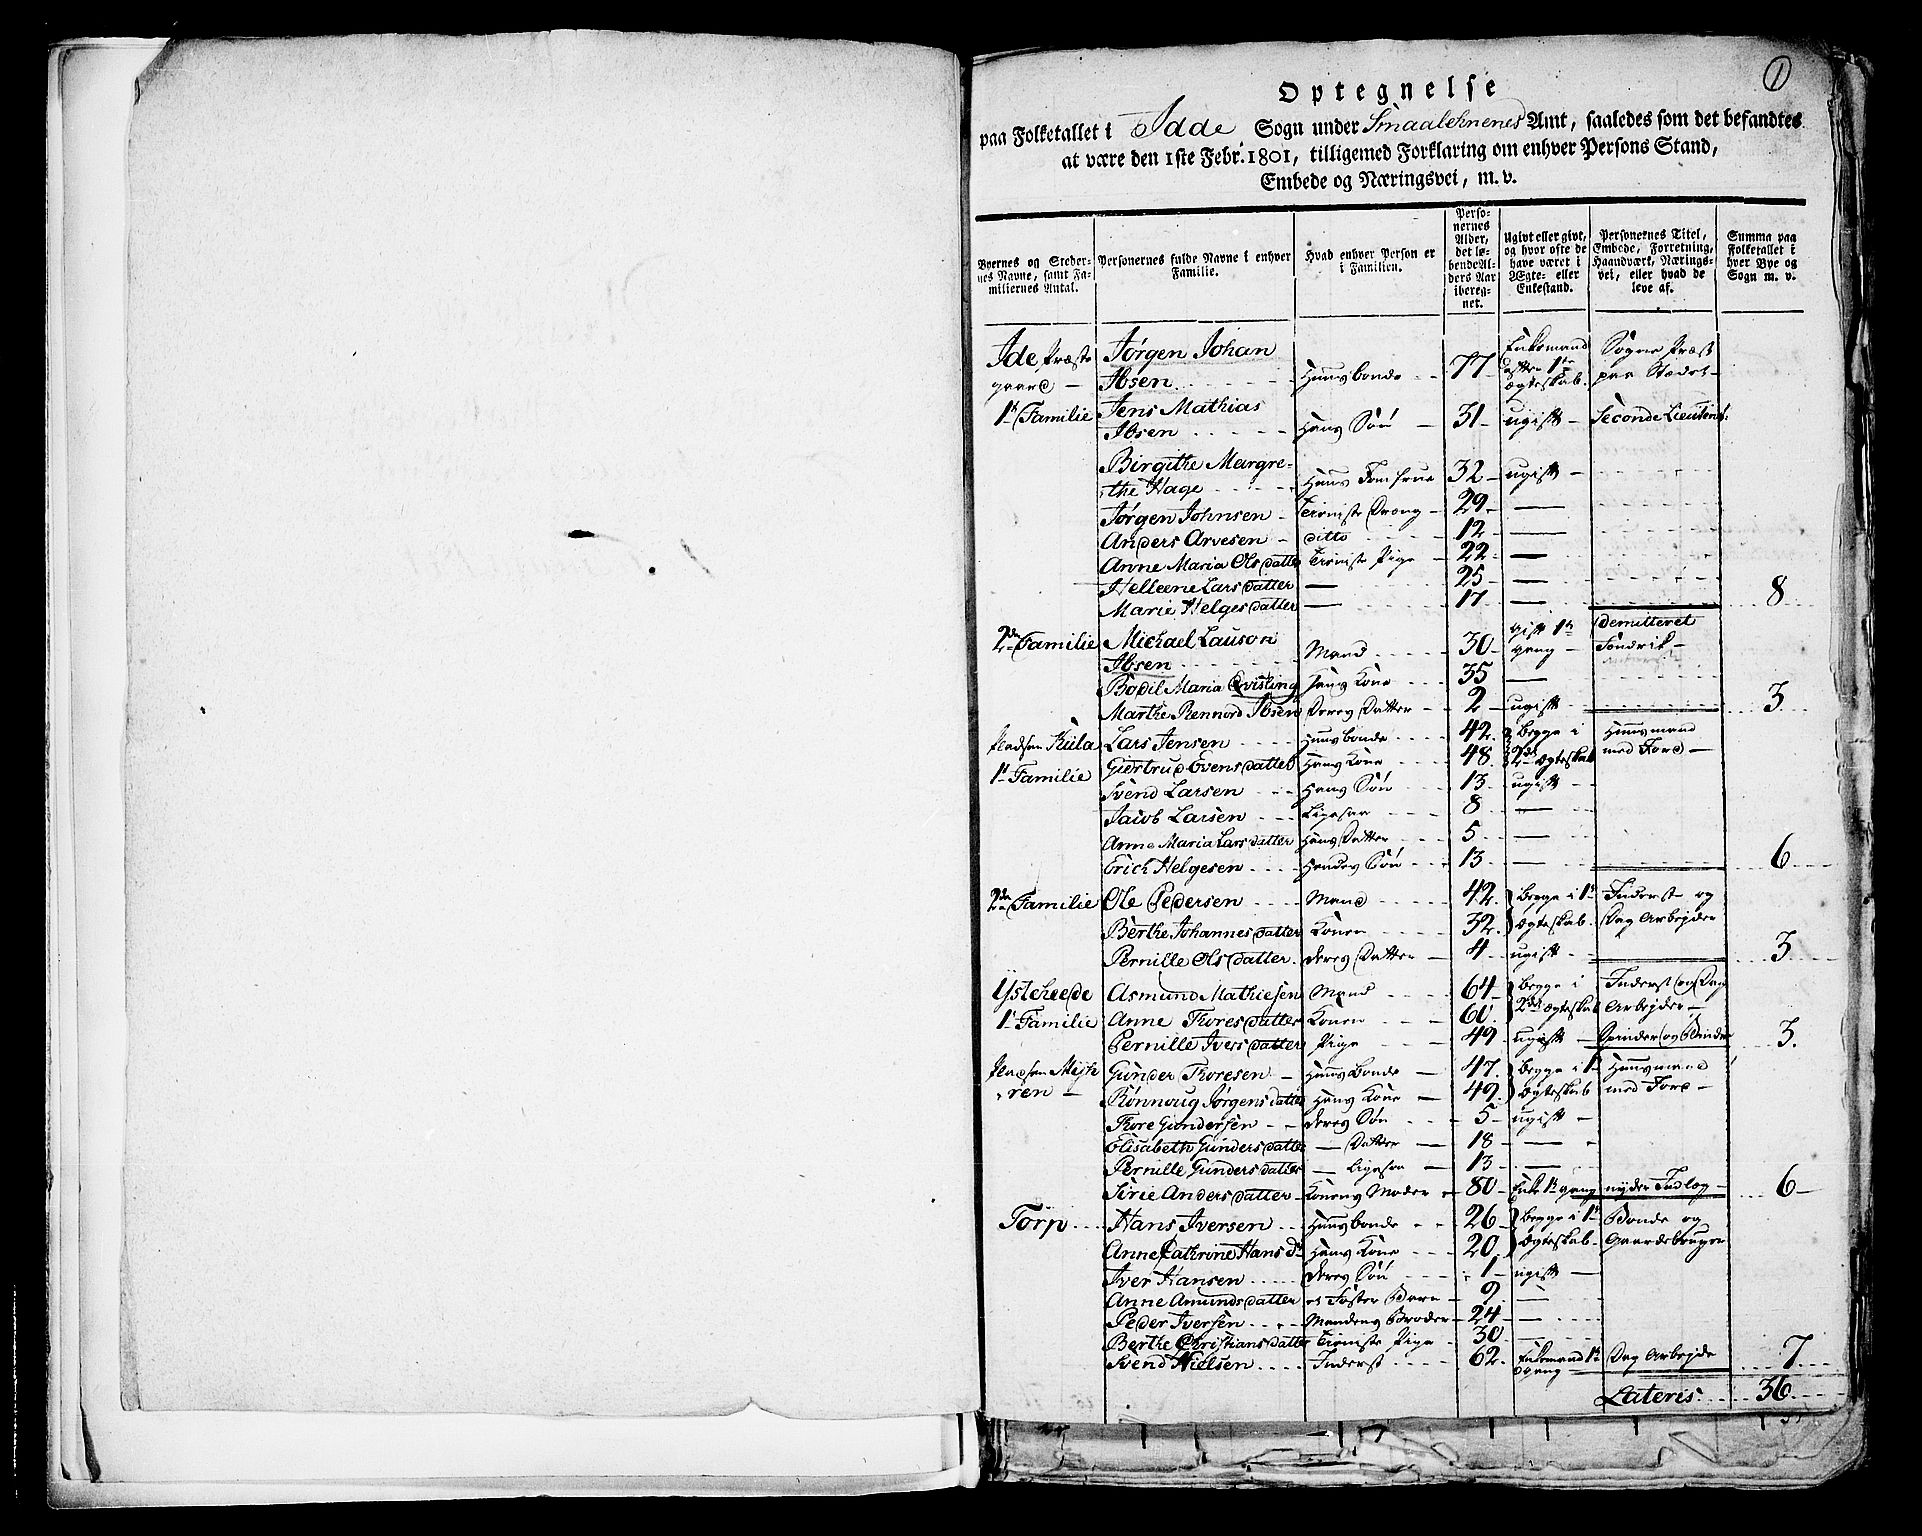 1
Optegnelse
paa Folketallet i Idde Sogn under Smaalehnenes Amt, saaledes som det befandtes
at være den 1ste Febr. 1801, tilligemed Forklaring om enhver Persons Stand,
Embede og Næringsvei, m. v.
Byernes og Stedernes Navne, samt Familiernes Antal. | Personernes fulde Navne i enhver Familie. | Hvad enhver Person er i Familien. | Personernes Alder, det løbende Alders Aar iberegnet. | Ugivt eller givt, og hvor ofte de have været i Ægte- eller Enkestand. | Personernes Titel, Embede, Forretning, Haandværk, Næringsvei, eller hvad de leve af. | Summa paa Folketallet i hver Bye og Sogn m. v.
Ide Præste Jørgen Johan Enkemand Sogne Præst
gaard — Ibsen Huusbonde 77 efter 1te ægteskab paa Stædet
1te Familie Jens Mathias
Ibsen Hans Søn 31 ugift Seconde Lieutent:
Birgithe Margre-
the Hage Huus Jomfrue 32 ugift
Jørgen Johnsen Tieniste Dreng 29 —
Anders Arvesen ditto 12 —
Anne Maria Ols datter Tieniste Pige 22 —
Helleene Lars datter — 25 —
Marie Helges datter — 17 — 8
2den Familie Michael Lauson gift 1te Demitteret
Ibsen Mand 30 gang
Bodil Maria Qvisling hans Kone 35 —
Marthe Rennord Ibsen Deres Datter 2 ugift 3
Pladsen Kiila Lars Jensen Huusbonde 42 begge i Huusmand
Giertrud Evens datter Hans Kone 48 2det Ægteskab med Jord
1te Familie Svend Larsen Hans Søn 13 ugift
Jacob Larsen Ligesaa 8 —
Anne Maria Lars datter Hans Datter 5 —
Erich Helgesen Hendes Søn 13 — 6
2den Familie Ole Pedersen Mand 42 begge i 1te Inderst og
Berthe Johannes datter Konen 32 Ægteskab Dag Arbejder
Pernille Ols datter deres Datter 4 ugift 3
Ysteheede Asmund Mathiesen Mand 64 begge i Inderst og Dag
1te Familie Anne Thores datter Konen 60 2det Ægteskab Arbejder
Pernille Ivers datter Pige 49 ugift Spinder og Binder 3.
Pladsen Gunder Thoresen Huusbonde 47 begge i 1te Huusmand
ren — Rønnoug Jørgens datter Hans Kone 49 Ægteskab med Jord
Thore Gundersen deres Søn 5 ugift
Elisabeth Gunders datter — Datter 18 —
Pernille Gunders datter — Ligesaa 13 —
Sirie Anders datter Konens Moder 80 Enke 1te gang nyder Indlæg 6
Torp Hans Iversen Huusbonde 26 begge i 1te Bonde og
Anne Cathrine Hans Dr Hans Kone 20 Ægteskab Gaardebruger
Iver Hansen deres Søn 1 ugift
Anne Amunds datter et Foster Barn 9 —
Peder Iversen Mandens Broder 24 —
Berthe Christians datter Tieniste Pige 30 —
Svend Nielsen Inderst 62 Enkemand 1te gang Dag Arbejde 7
Lateris 36